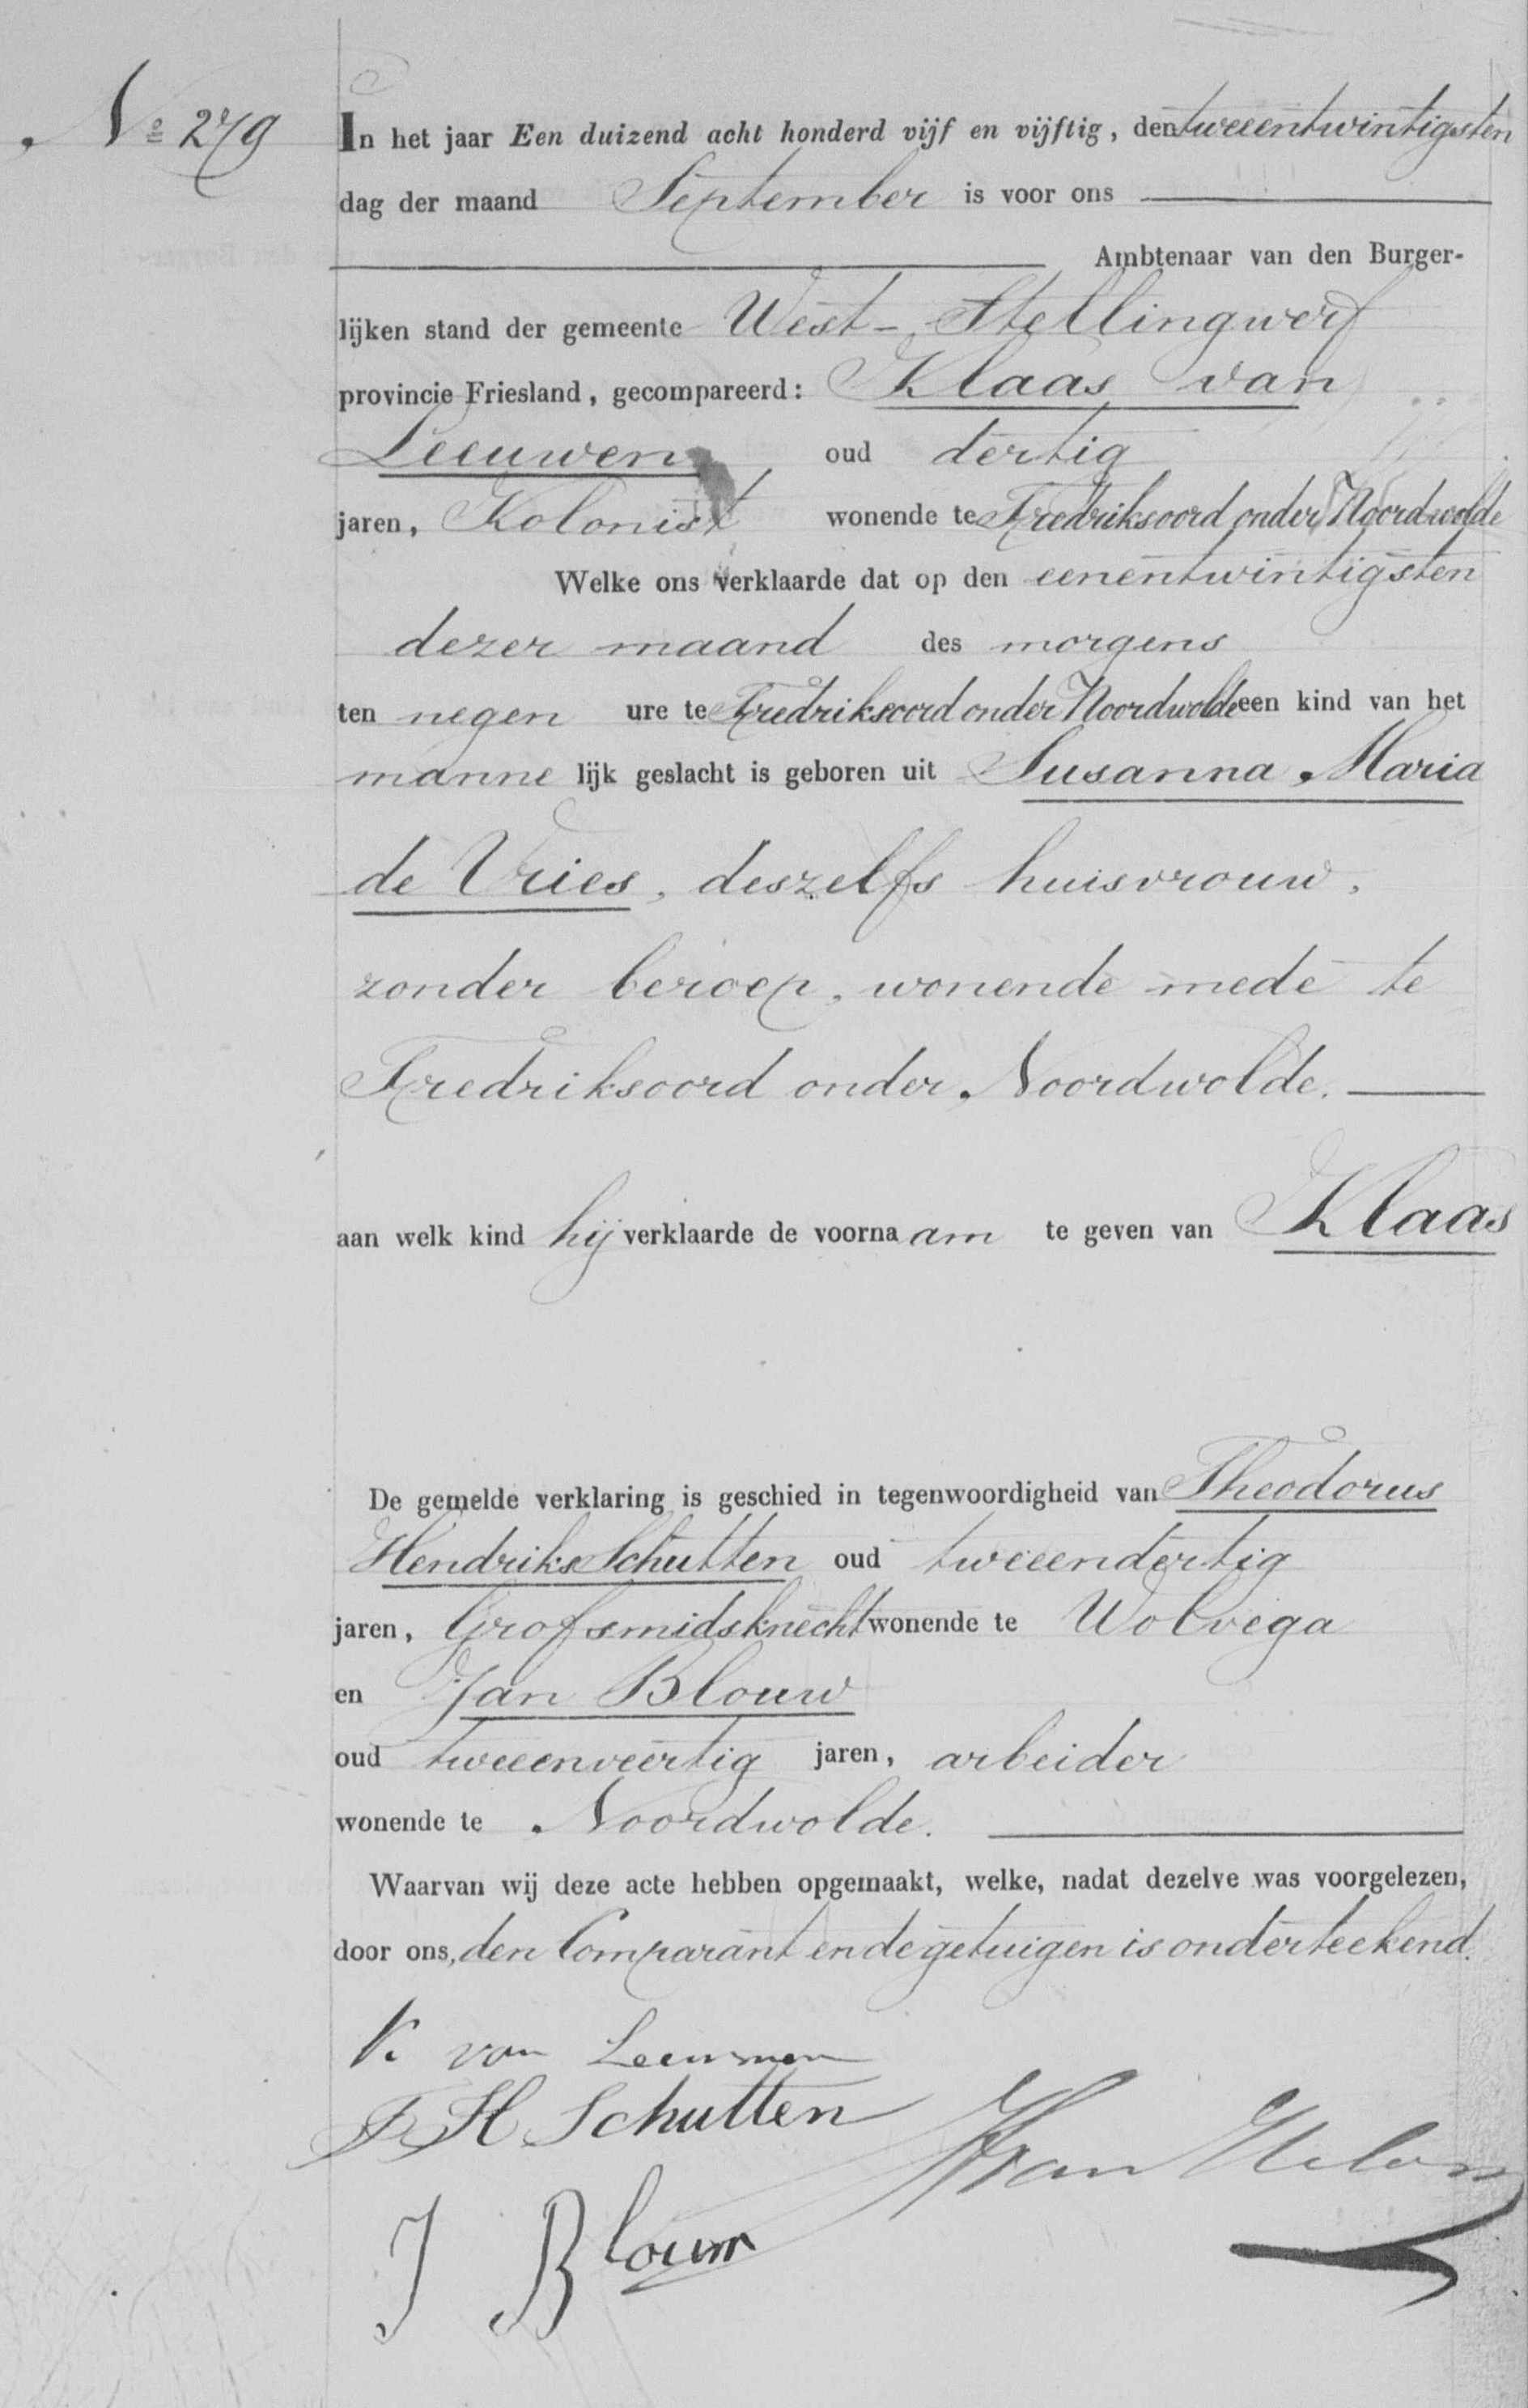 No 279
In het jaar Een duizend acht honderd vijf en vijftig, den tweeentwintigsten
dag der maand September is voor ons
Ambtenaar van den Burger-
lijken stand der gemeente West-Stellingwerf
provincie Friesland, gecompareerd: Klaas van
Leeuwen, oud dertig
jaren, Kolonist wonende te Fredriksoord onder Noordwolde
Welke ons verklaarde dat op den eenentwintigsten
dezer maand des morgens
ten negen ure te Fredriksoord onder Noordwolde een kind van het
manne lijk geslacht is geboren uit Susanna Maria
de Vries, deszelfs huisvrouw,
zonder beroep, wonende mede te
Fredriksoord onder Noordwolde.
aan welk kind hij verklaarde de voorna am te geven van Klaas
De gemelde verklaring is geschied in tegenwoordigheid van Theodorus
Hendriks Schutten oud tweeendertig
jaren, Grofsmidsknecht wonende te Wolvega
en Jan Blouw
oud tweeenveertig jaren, arbeider
wonende te Noordwolde.
Waarvan wij deze acte hebben opgemaakt, welke, nadat dezelve was voorgelezen,
door ons, den Comparant en de getuigen is onderteekend.
K. van Leeuwen
T H Schutten
J Blouw